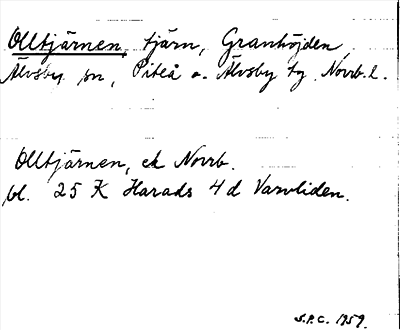 Olltjärnen, tjärn, Granhöjden,
Älvsby sn, Piteå o. Älvsby tg, Norrb. l.
Olltjärnen, ek Norrb.
bl. 25 K Harads 4d Varvliden.
S.P.C. 1959.